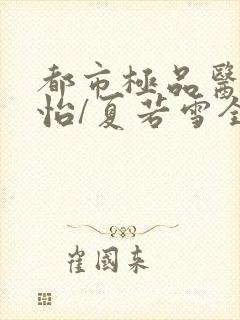 都市極品醫
怡/夏若雪全
崔國来